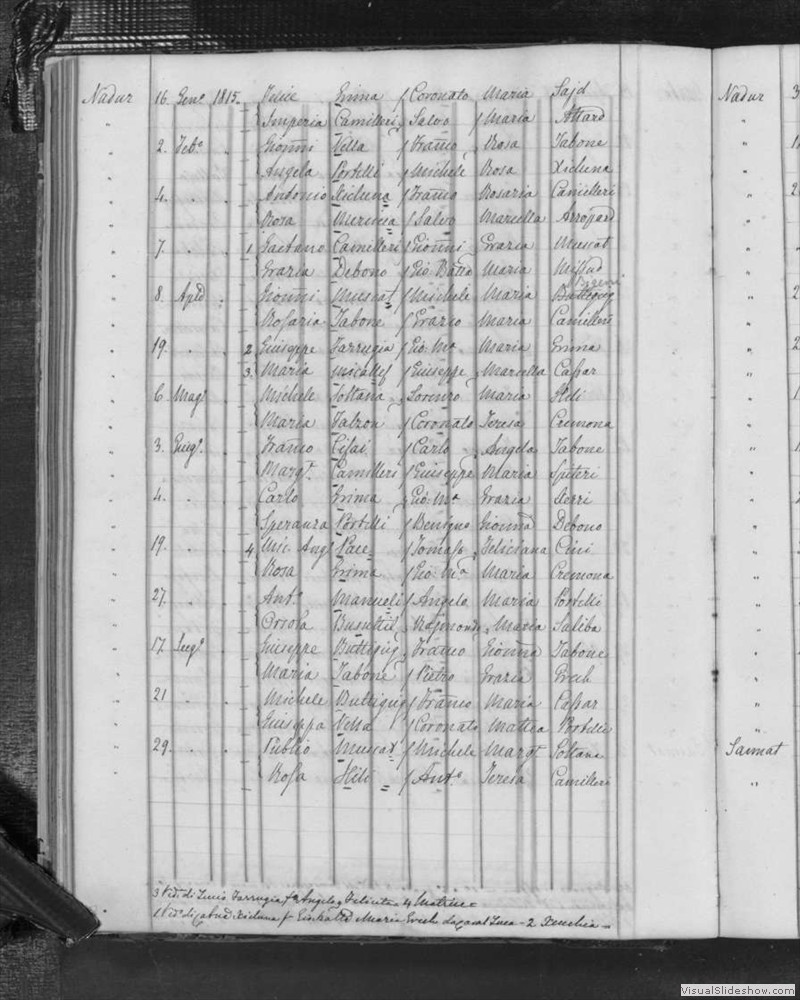 Nadur 16. Genº 1815. Grima / Coronato Maria Sajd
Imperia Camilleri / Salvo / Maria Attard
2. Febº Gionni Vella / Franco Rosa Tabone
Angela Portelli / Michele Rosa Xicluna
4. Antonio Xicluna / Franco Rosaria Camilleri
Rosa Mercieca / Salvo Marcella
7. 1 Gaetano Camilleri / Gionni Grazia Muscat
Grazia Debono / Gio Batta Maria Mifsud
8. Aple Gionni Muscat / Michele Maria Buttigieg
Rosaria Tabone / Grazio Maria Camilleri
19. 2 Giuseppe Farrugia / Gio. Mª Maria Grima
3. Maria Micallef / Giuseppe Marcella Caspar
6 Magº Michele Soltana Lorenzo Maria Hili
Maria Falzon / Coronato Teresa Cremona
3. Giugº Franco Cefai / Carlo Angela Tabone
Margª Camilleri / Giuseppe Maria Spiteri
4. Carlo Grima / Gio. Mª Grazia Sterri
Speranza Portelli / Benigno Gionna Debono
19. 4 Mic. Angº Pace / Tomaso Feliciana Cini
Rosa Grima / Gio. Mª Maria Cremona
27. Antº Manueli / Angelo Maria Portelli
Orsola Busuttil Raimondo Maria Saliba
17. Lugº Giuseppe Buttigieg Franco Gionna Tabone
Maria Tabone / Pietro Grazia Grech
21 Michele Buttigieg / Franco Maria Caspar
Giuseppa Vella / Coronato Mattea Portelli
29. Publio Muscat / Michele Margª Soltana
Rosa Hili / Antº Teresa Camilleri
3 Vedº di Farrugia Angelo Felicita 4 Matrice
1 Vedº di Xicluna Maria Grech 2 Xeuchia
Nadur
Sannat
VisualSlideshow.com